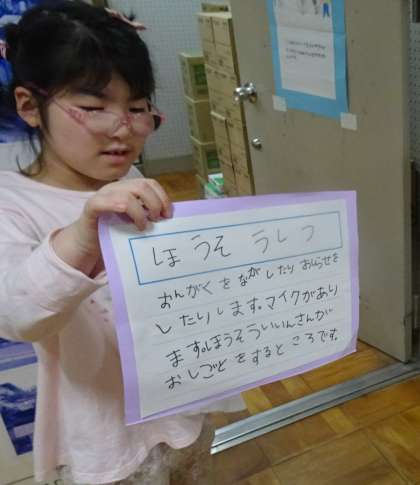 ほうそうしつ
おんがくをながしたりおしらせを
したりします。マイクがあり
ます。ほうそういいんさんが
おしごとをするところです。